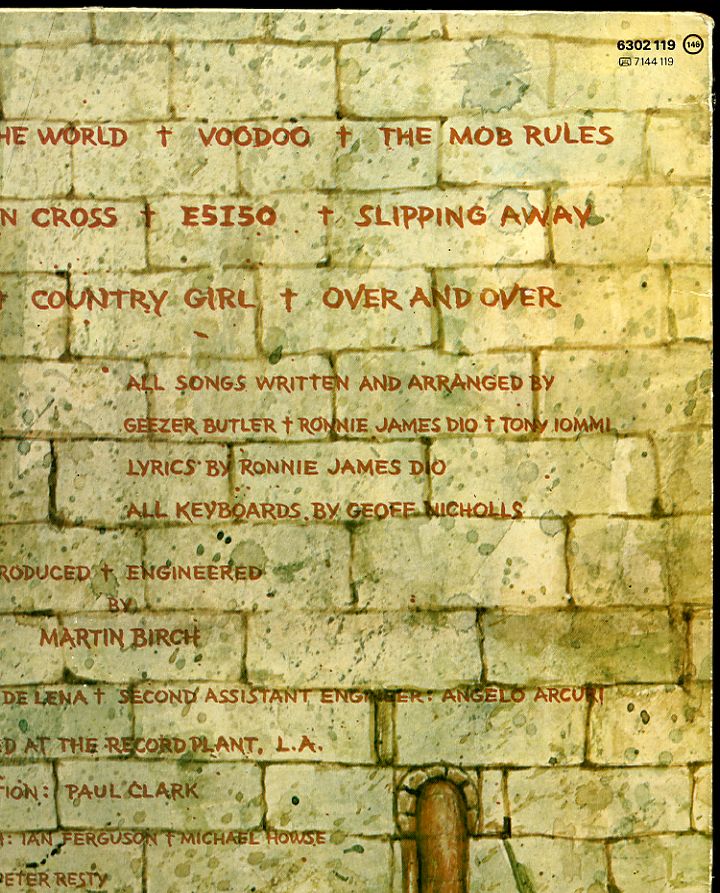 6302 119 146
7144 119
HE WORLD † VOODOO † THE MOB RULES
N CROSS † E5150 † SLIPPING AWAY
† COUNTRY GIRL † OVER AND OVER
ALL SONGS WRITTEN AND ARRANGED BY
GEEZER BUTLER † RONNIE JAMES DIO † TONY IOMMI
LYRICS BY RONNIE JAMES DIO
ALL KEYBOARDS BY GEOFF NICHOLLS
RODUCED † ENGINEERED
BY
MARTIN BIRCH
DE LENA † SECOND ASSISTANT ENGINEER: ANGELO ARCURI
D AT THE RECORD PLANT, L.A.
TION: PAUL CLARK
: IAN FERGUSON † MICHAEL HOWSE
PETER RESTY